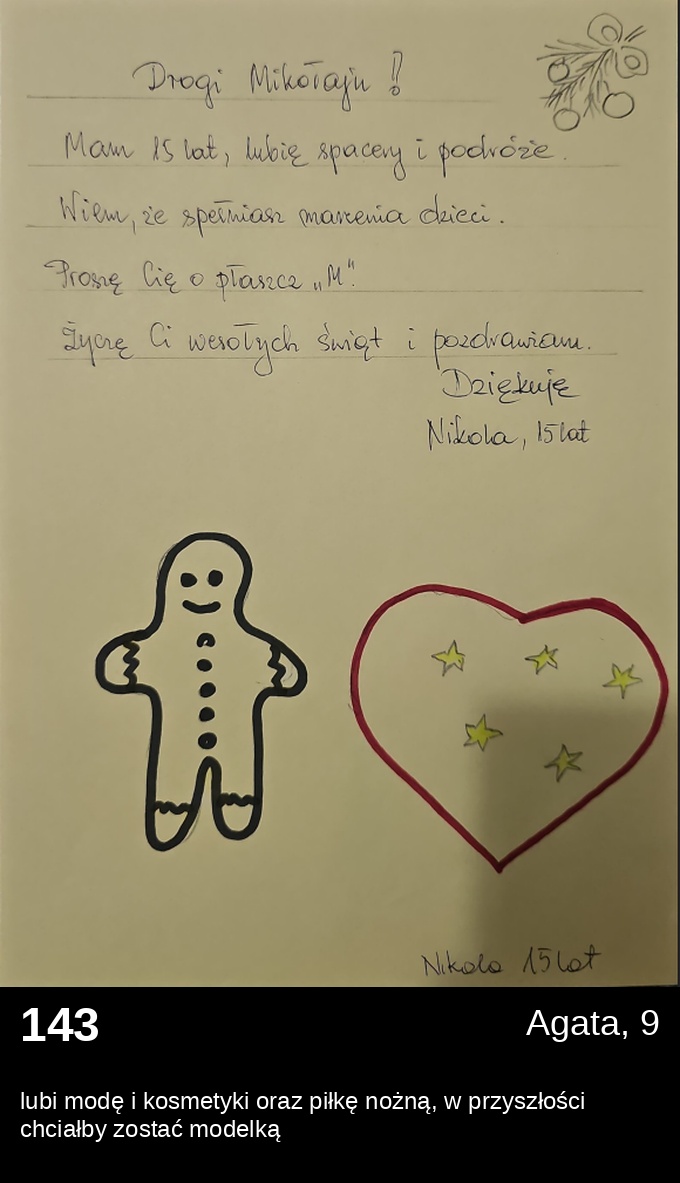 Drogi Mikołaju !
Mam 15 lat, lubię spacery i podróże.
Wiem, że spełniasz marzenia dzieci.
Proszę Cię o płaszcz „M".
Życzę Ci wesołych świąt i pozdrawiam.
Dziękuję
Nikola, 15 lat
Nikola 15 lat
143
Agata, 9
lubi modę i kosmetyki oraz piłkę nożną, w przyszłości
chciałby zostać modelką